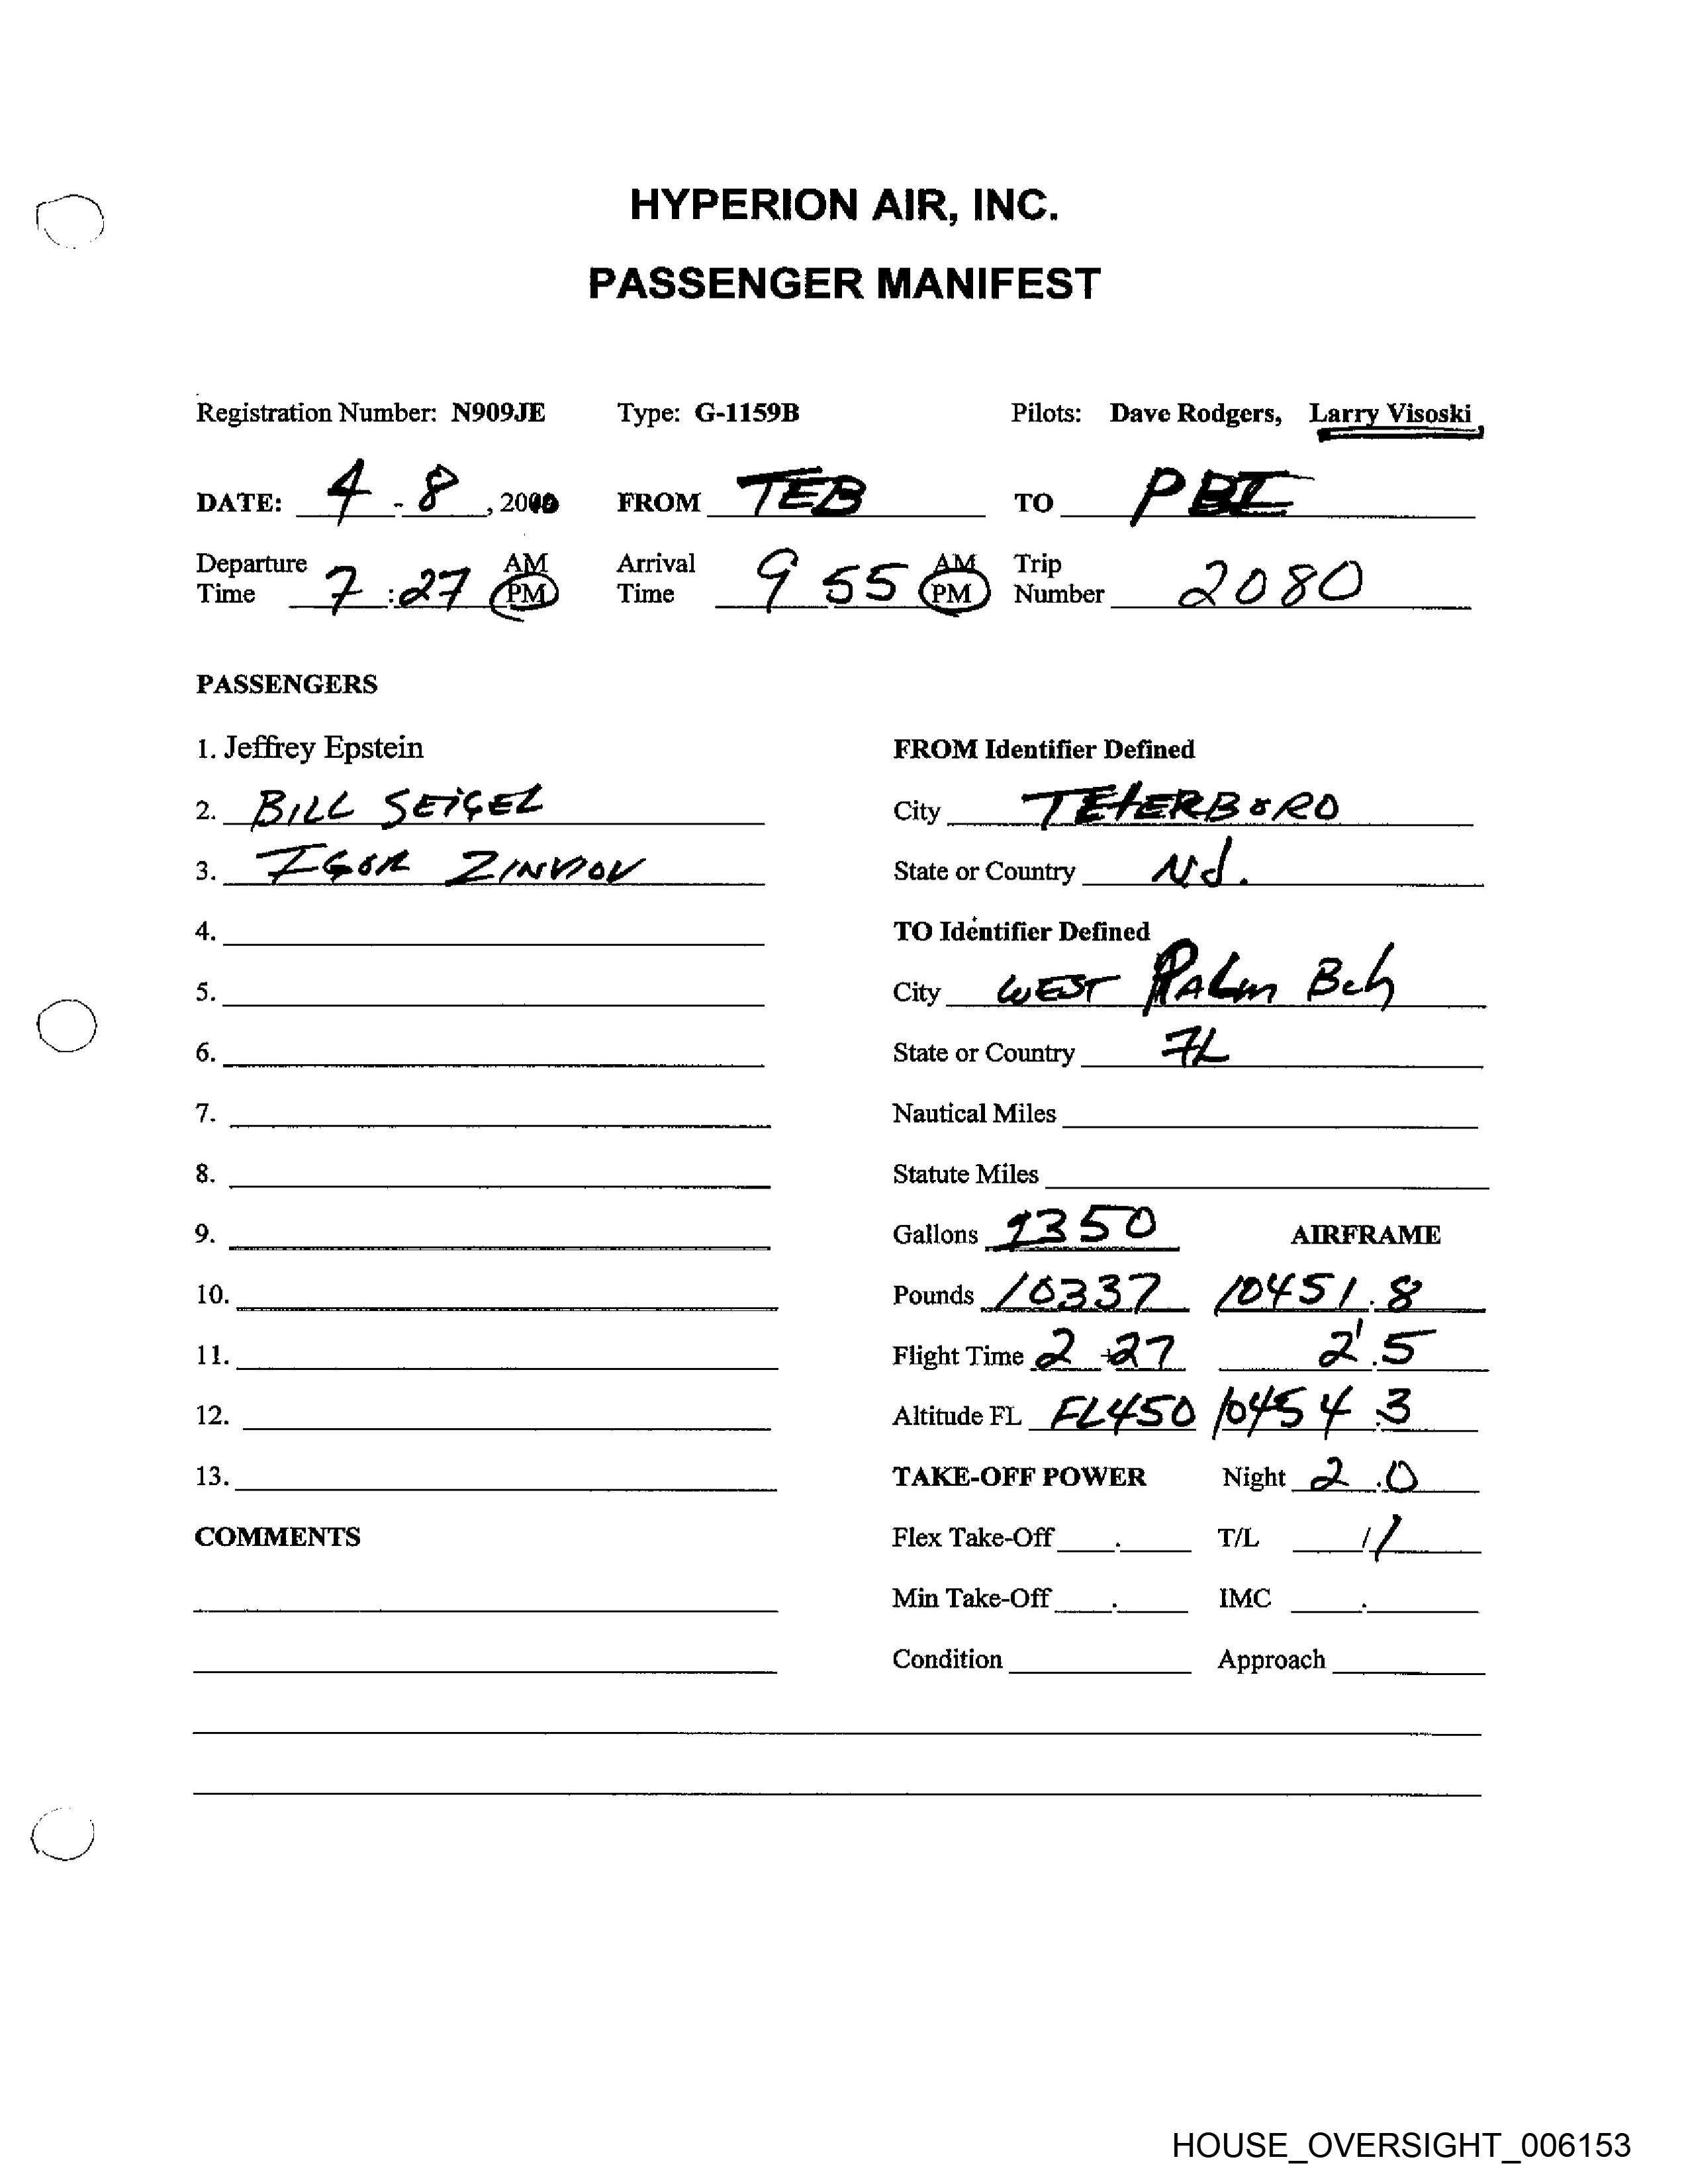 HYPERION AIR, INC.
PASSENGER MANIFEST
Registration Number: N909JE Type: G-1159B Pilots: Dave Rodgers, Larry Visoski
DATE: 4 - 8, 200 FROM TEB TO PBI
Departure Time 7:27 AM PM Arrival Time 9 55 AM PM Trip Number 2080
PASSENGERS
1. Jeffrey Epstein FROM Identifier Defined
2. BILL SEIGEL City TETERBORO
3. IGOR ZINVIOV State or Country NJ.
4. TO Identifier Defined
5. City WEST PALm Bch
6. State or Country FL
7. Nautical Miles
8. Statute Miles
9. Gallons 350 AIRFRAME
10. Pounds 10337 10451.8
11. Flight Time 2 27 2.5
12. Altitude FL FL450 10454.3
13. TAKE-OFF POWER Night 2.0
COMMENTS Flex Take-Off . T/L /1
Min Take-Off . IMC .
Condition Approach
HOUSE_OVERSIGHT_006153